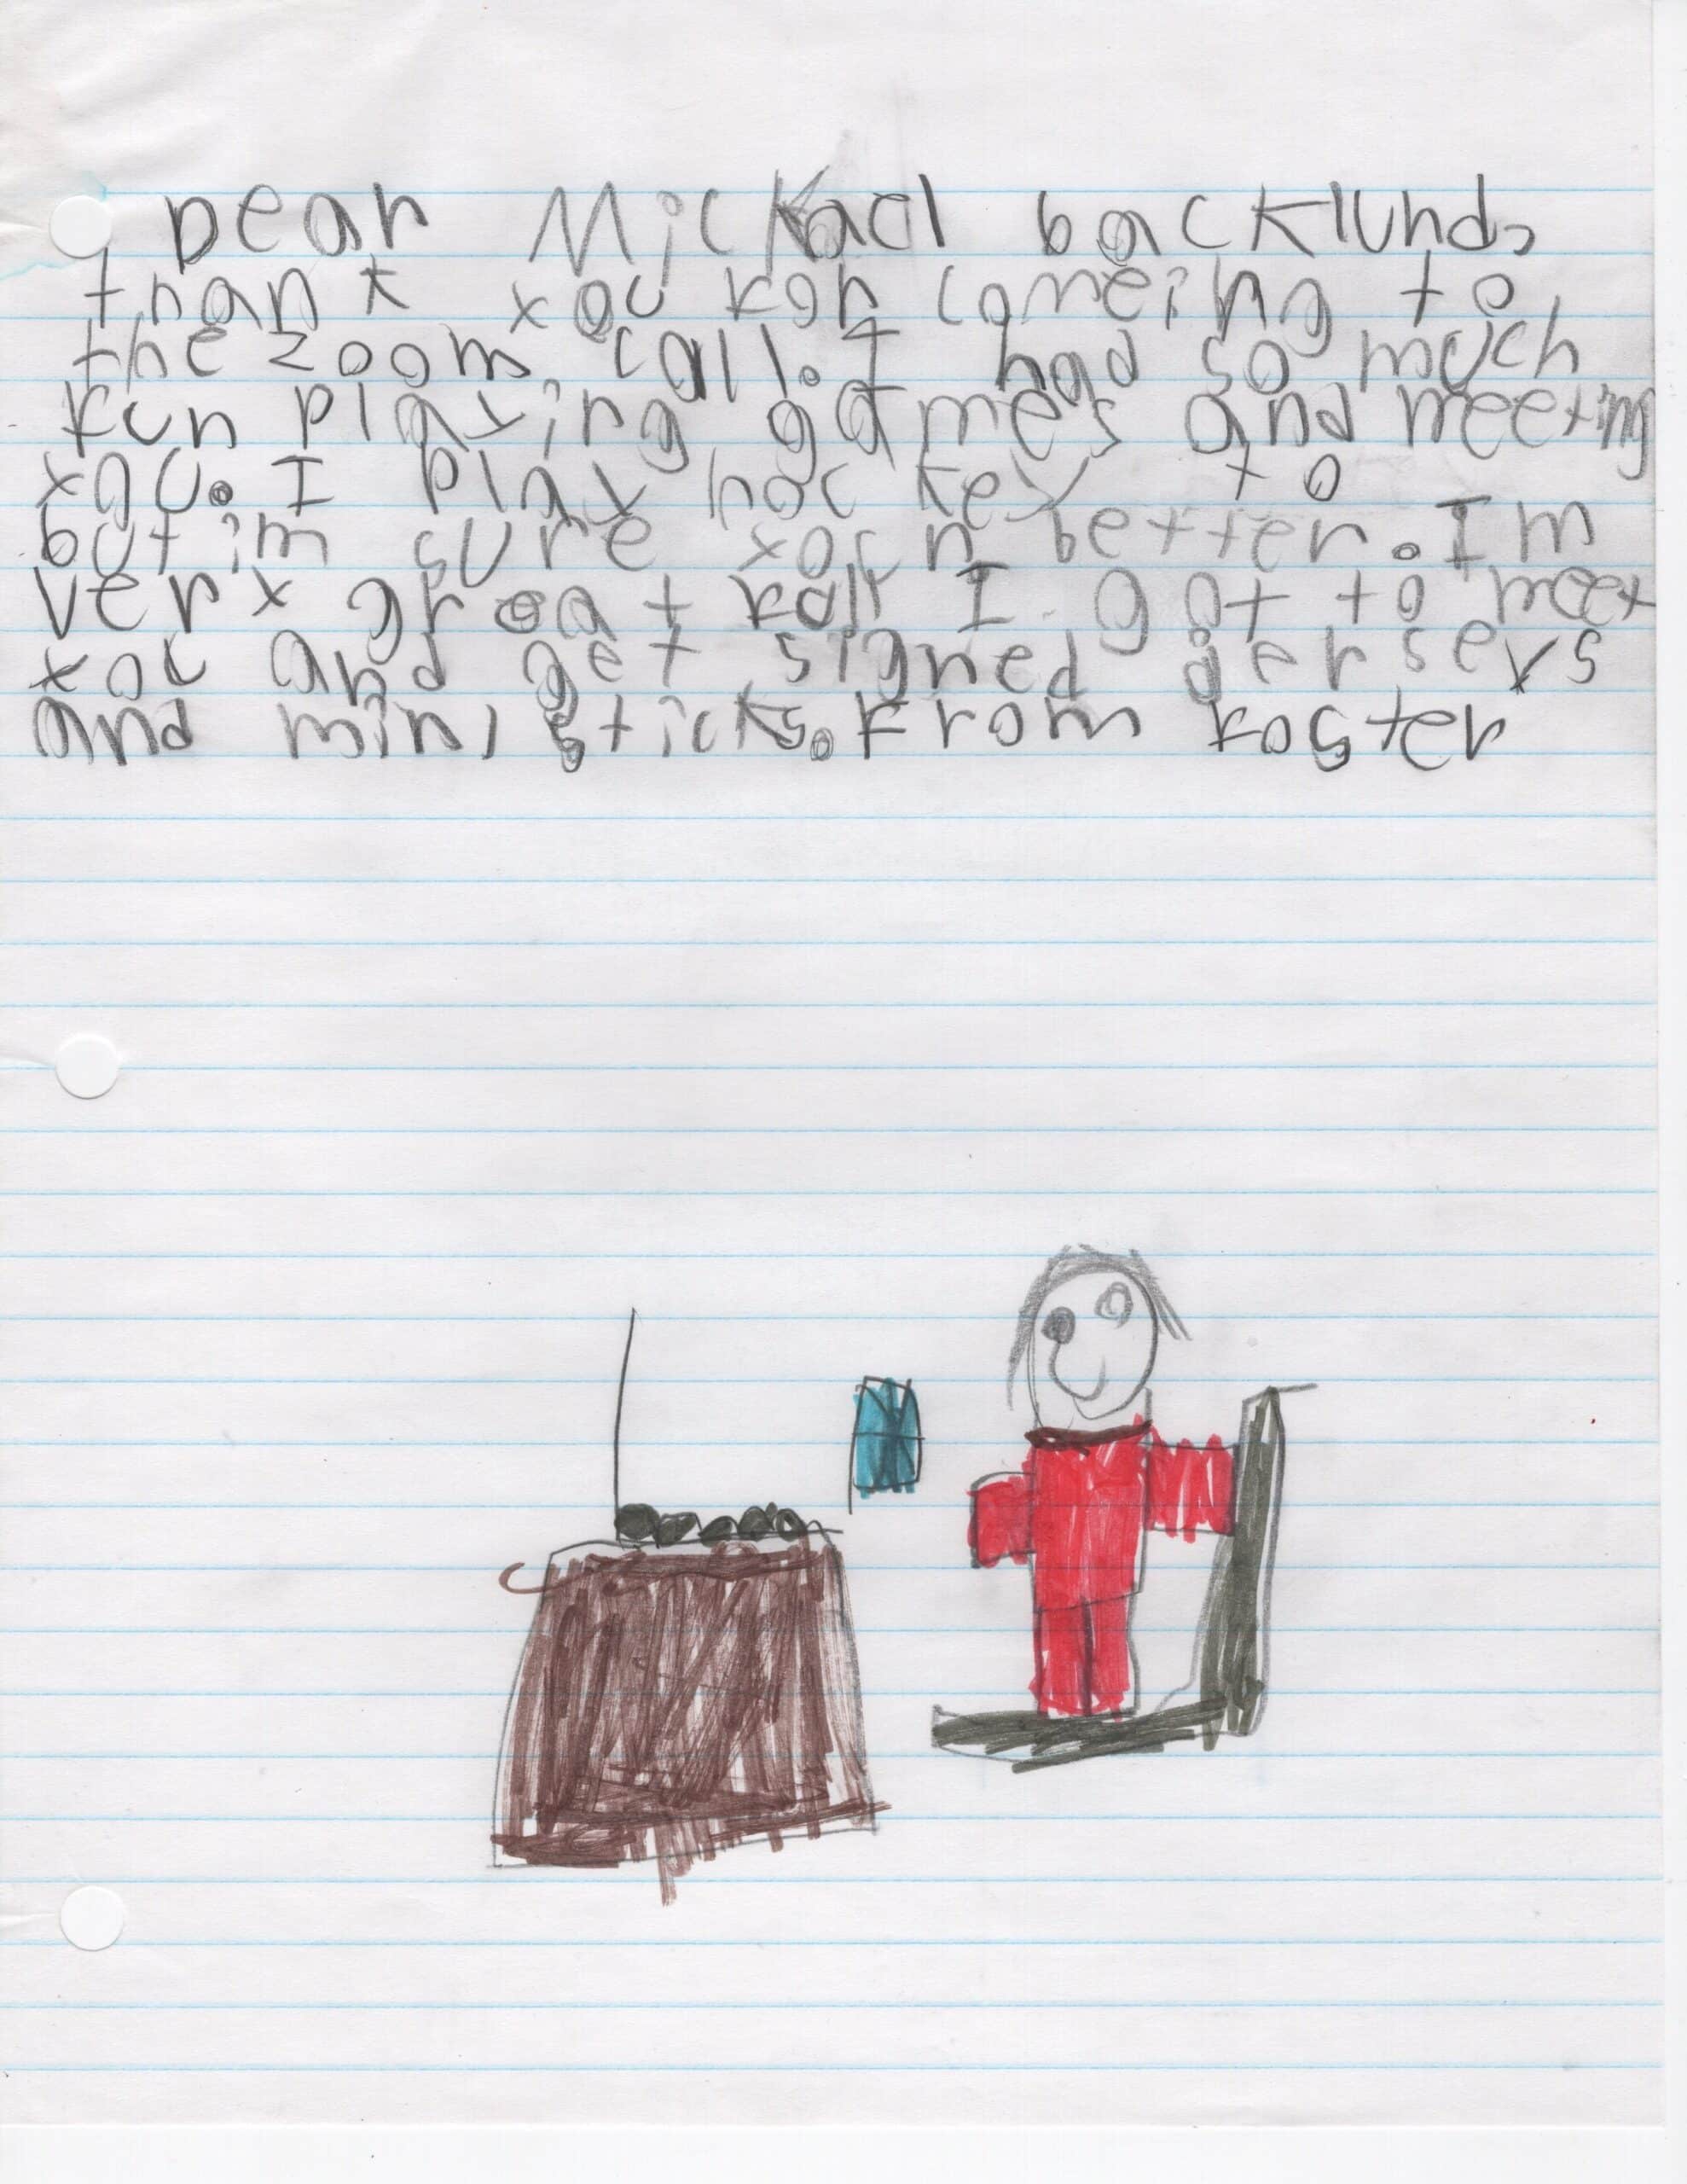 Dear Mickael backlund,
thank you for comeing to
the zoom call. I had so much
fun playing games and meeting
you. I play hockey to
but im sure your better. Im
very greatfall I got to meet
you and get signed jerseys
and mini sticks. From Foster